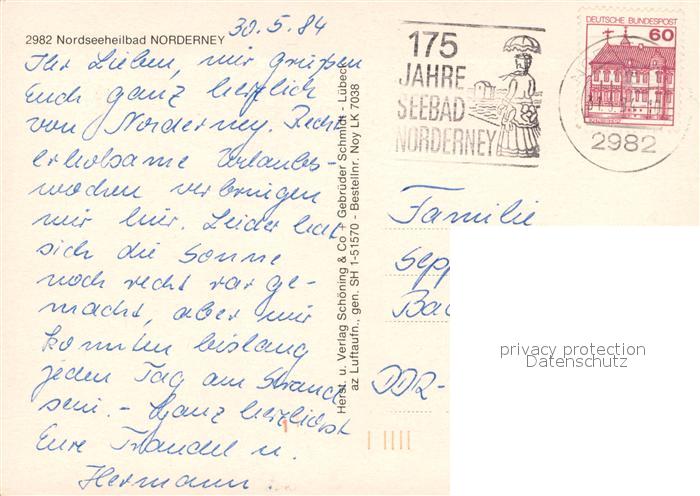 2982 Nordseeheilbad NORDERNEY
30.5.84
Ihr Lieben, wir grüßen
Euch ganz herzlich
von Norderney. Recht
erholsame Urlaubs-
wochen verbringen
wir hier. Leider hat
sich die Sonne
noch recht rar ge-
macht, aber wir
konnten bislang
jeden Tag am Strand
sein. - Ganz herzlichst
Eure Traudel u.
Hermann
Herst. u. Verlag Schöning & Co + Gebrüder Schmidt - Lübeck
az Luftaufn., gen. SH 1-51570 - Bestellnr. Noy LK 7038
175
JAHRE
SEEBAD
NORDERNEY
DEUTSCHE BUNDESPOST
60
2982
Familie
Sepp
Ba
DDR-
privacy protection
Datenschutz